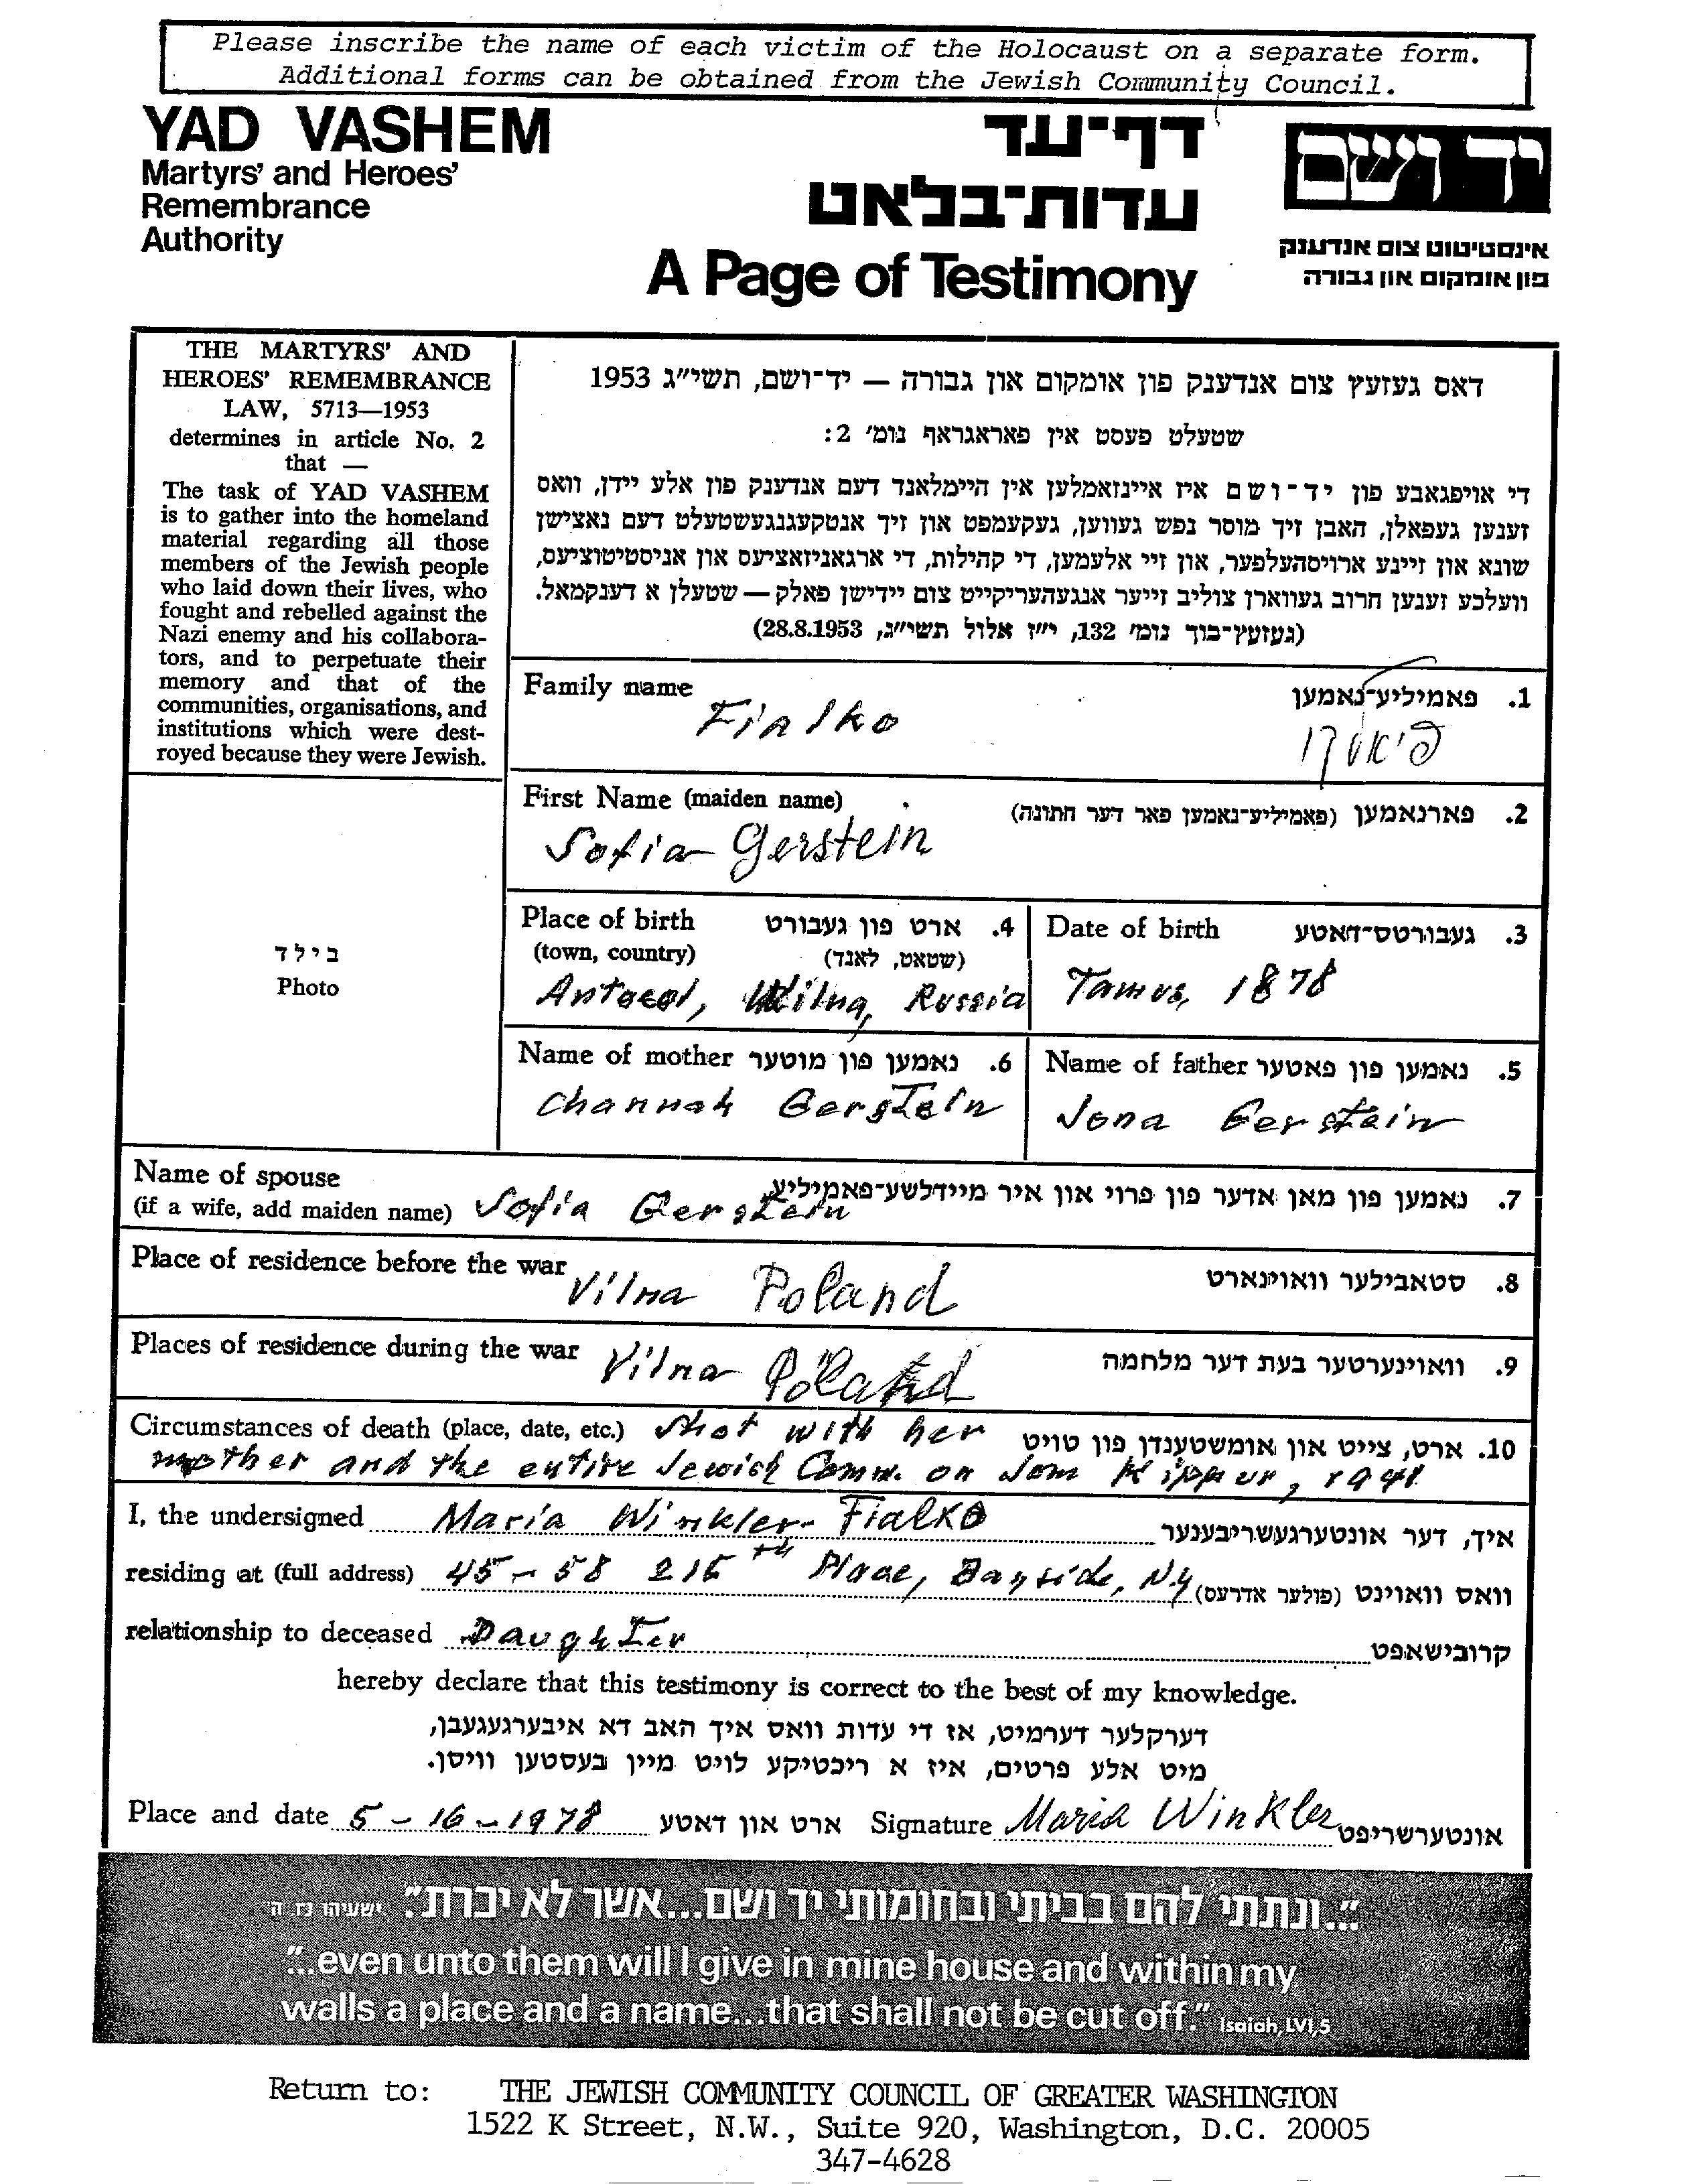 Please inscribe the name of each victim of the Holocaust on a separate form.
Additional forms can be obtained from the Jewish Community Council.
YAD VASHEM
Martyrs' and Heroes'
Remembrance
Authority
דף־עד
עדות־בלאט
A Page of Testimony
יד ושם
אינסטיטוט צום אנדענק
פון אומקום און גבורה
THE MARTYRS' AND
HEROES' REMEMBRANCE
LAW, 5713—1953
determines in article No. 2
that —
The task of YAD VASHEM
is to gather into the homeland
material regarding all those
members of the Jewish people
who laid down their lives, who
fought and rebelled against the
Nazi enemy and his collabora-
tors, and to perpetuate their
memory and that of the
communities, organisations, and
institutions which were dest-
royed because they were Jewish.
דאס געזעץ צום אנדענק פון אומקום און גבורה — יד־ושם, תשי״ג 1953
שטעלט פעסט אין פאראגראף נומ׳ 2:
די אויפגאבע פון יד־ושם איז איינזאמלען אין היימלאנד דעם אנדענק פון אלע יידן, וואס
זענען געפאלן, האבן זיך מוסר נפש געווען, געקעמפט און זיך אנטקעגנגעשטעלט דעם נאצישן
שונא און זיינע ארויסהעלפער, און זיי אלעמען, די קהילות, די ארגאניזאציעס און אניסטיטוציעס,
וועלכע זענען חרוב געווארן צוליב זייער אנגעהעריקייט צום יידישן פאלק — שטעלן א דענקמאל.
(געזעץ־בוך נומ׳ 132, י״ז אלול תשי״ג, 28.8.1953)
Family name
1. פאמיליע־נאמען
Fialko
First Name (maiden name)
2. פארנאמען (פאמיליע־נאמען פאר דער חתונה)
Sofia Gerstein
Place of birth
(town, country)
4. ארט פון געבורט
(שטאט, לאנד)
Antocol, Wilna, Russia
Date of birth
3. געבורטס־דאטע
Tamus, 1878
בילד
Photo
Name of mother 6. נאמען פון מוטער
Channah Gerstein
Name of father 5. נאמען פון פאטער
Jona Gerstein
Name of spouse
(if a wife, add maiden name) Sofia Gerstein
7. נאמען פון מאן אדער פון פרוי און איר מיידלשע־פאמיליע
Place of residence before the war Vilna Poland
8. סטאבילער וואוינארט
Places of residence during the war Vilna Poland
9. וואוינערטער בעת דער מלחמה
Circumstances of death (place, date, etc.) Shot with her
10. ארט, צייט און אומשטענדן פון טויט
mother and the entire Jewish Comm. on Jom Kippur, 1941
I, the undersigned Maria Winkler-Fialko איך, דער אונטערגעשריבענער
residing at (full address) 45-58 216th Place, Bayside, N.Y וואס וואוינט (פולער אדרעס)
relationship to deceased Daughter קרובישאפט
hereby declare that this testimony is correct to the best of my knowledge.
דערקלער דערמיט, אז די עדות וואס איך האב דא איבערגעגעבן,
מיט אלע פרטים, איז א ריכטיקע לויט מיין בעסטען וויסן.
Place and date 5-16-1978 ארט און דאטע Signature Maria Winkler אונטערשריפט
"...ונתתי להם בביתי ובחומותי יד ושם...אשר לא יכרת." ישעיהו נו, ה
"...even unto them will I give in mine house and within my
walls a place and a name...that shall not be cut off." Isaiah, LVI,5
Return to: THE JEWISH COMMUNITY COUNCIL OF GREATER WASHINGTON
1522 K Street, N.W., Suite 920, Washington, D.C. 20005
347-4628